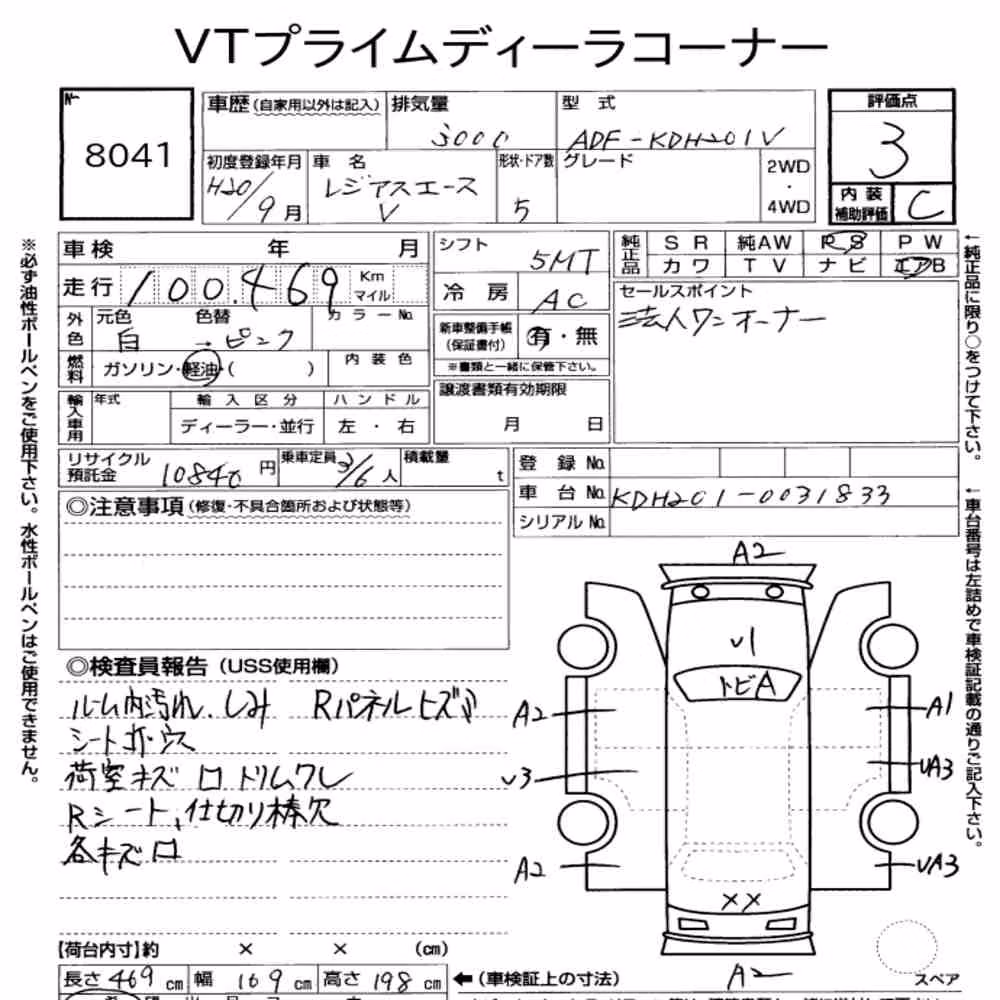 VTプライムディーラコーナー
No.
8041
車歴 (自家用以外は記入)
排気量
3000
型式
ADF-KDH201V
評価点
3
初度登録年月
H20/9月
車名
レジアスエース
V
形状・ドア数
5
グレード
2WD
・
4WD
内装
補助評価
C
車検 年 月
走行 100.469 Km
マイル
外色
元色 色替 カラーNo.
白 → ピンク
燃料
ガソリン・軽油・( )
内装色
輸入車用
年式
輸入区分
ハンドル
ディーラー・並行
左・右
シフト
5MT
冷房
AC
新車整備手帳
(保証書付)
有・無
※書類と一緒に保管下さい。
譲渡書類有効期限
月 日
純正品
SR 純AW PS PW
カワ TV ナビ エアB
セールスポイント
法人ワンオーナー
リサイクル
預託金
10840円
乗車定員
3/6人
積載量
t
登録No.
車台No. KDH201-0031833
シリアルNo.
◎注意事項 (修復・不具合箇所および状態等)
◎検査員報告 (USS使用欄)
ルーム内汚れ、しみ Rパネルヒズミ
シートホ
荷室キズ ロ ドリムワレ
Rシート、仕切り棒欠
各キズ ロ
A2
U1
トビA
A2
A1
U3
UA3
A2
UA3
XX
A2
スペア
【荷台内寸】約 × × (cm)
長さ 469 cm 幅 169 cm 高さ 198 cm
←(車検証上の寸法)
※必ず油性ボールペンをご使用下さい。水性ボールペンはご使用できません。
←純正品に限り○をつけて下さい。
←車台番号は左詰めで車検証記載の通りご記入下さい。